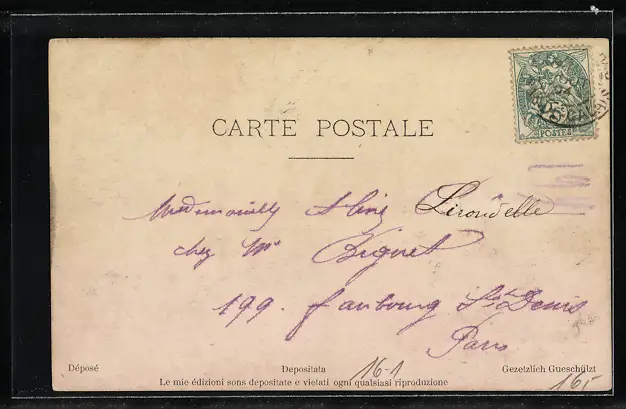 CARTE POSTALE
POSTES
Mademoiselle Aline Lirondelle
chez Mr Biguet
199. faubourg St Denis
Paris
Déposé
Depositata
16-1
Gezetzlich Gueschülzt
Le mie édizioni sons depositate e vietati ogni qualsiasi riproduzione
165